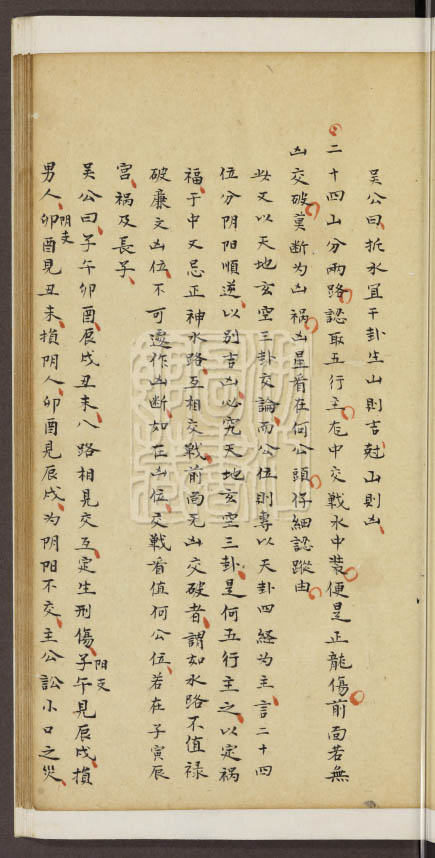 吴公曰折水宜干卦生山則吉尅山則凶
二十四山分兩路認取五行主龙中交战水中装便是正龍傷前面若無
凶交破莫断为凶祸凶星看在何公頭仔細認蹤由
此又以天地玄空三卦交論而公位則專以天卦四経为主言二十四
位分阴阳順逆以别吉凶必究天地玄空三卦是何五行主之以定祸
福于中又忌正神水路互相交戰前面无凶交破者謂如水路不值禄
破廉文凶位不可遽作凶断如在凶位交戰看值何公位若在子寅辰
宫祸及長子
吴公曰子午卯酉辰戌丑未八路相見交互定生刑傷子午見辰戌損阳支
男人卯酉見丑未損阴人卯酉見辰戌为阴阳不交主公訟小口之災阴支